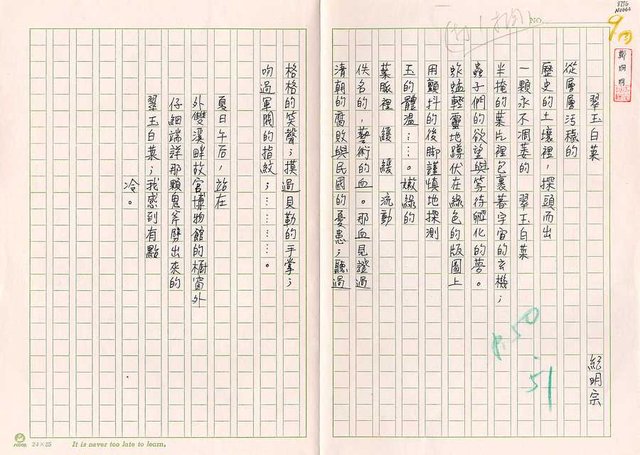 NO.
翠玉白菜
紀明宗
從層層污穢的
歷史的土壤裡，探頭而出
一顆永不凋萎的 翠玉白菜
半掩的葉片裡包裹著宇宙的玄機；
蟲子們的欲望與等待孵化的夢。
蚱蜢輕靈地蹲伏在綠色的版圖上
用顫抖的後脚謹慎地探測
玉的體溫……。嫩綠的
葉脈裡 緩 緩 流動
佚名的，藝術的血。那血見證過
清朝的腐敗與民國的憂患；聽過
格格的笑聲；摸過貝勒的手掌；
吻過軍閥的指紋；…………。
夏日午后，站在
外雙溪畔故宮博物館的橱窗外
仔細端詳那顆鬼斧劈出來的
翠玉白菜；我感到有點
冷。
P.50
51
24×25 It is never too late to learn.